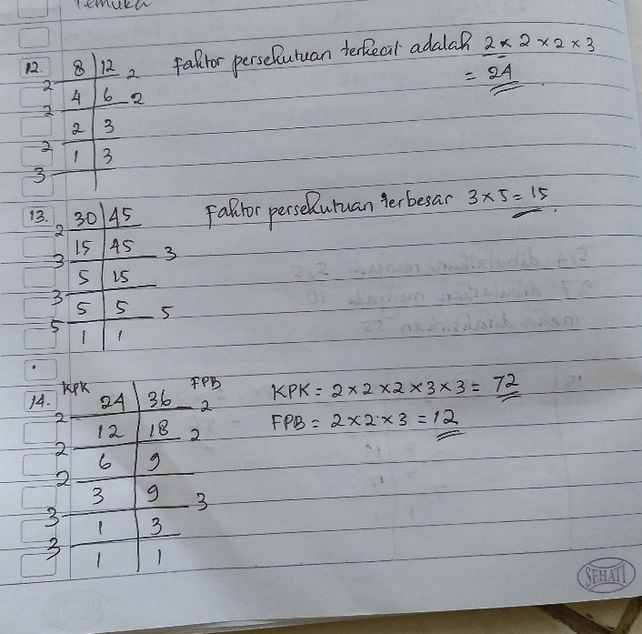 Temuka
12. 8 | 12 2 faktor persekutuan terkecil adalah 2 x 2 x 2 x 3
2 = 24
4 | 6 2
2
2 | 3
2
1 | 3
3
13. 30 | 45 Faktor persekutuan terbesar 3 x 5 = 15
2
15 | 45 3
3
5 | 15
3
5 | 5 5
5
1 | 1
14. KPK 24 | 36 FPB 2 KPK = 2 x 2 x 2 x 3 x 3 = 72
2
12 | 18 2 FPB = 2 x 2 x 3 = 12
2
6 | 9
2
3 | 9 3
3
1 | 3
3
1 | 1
SEHATI